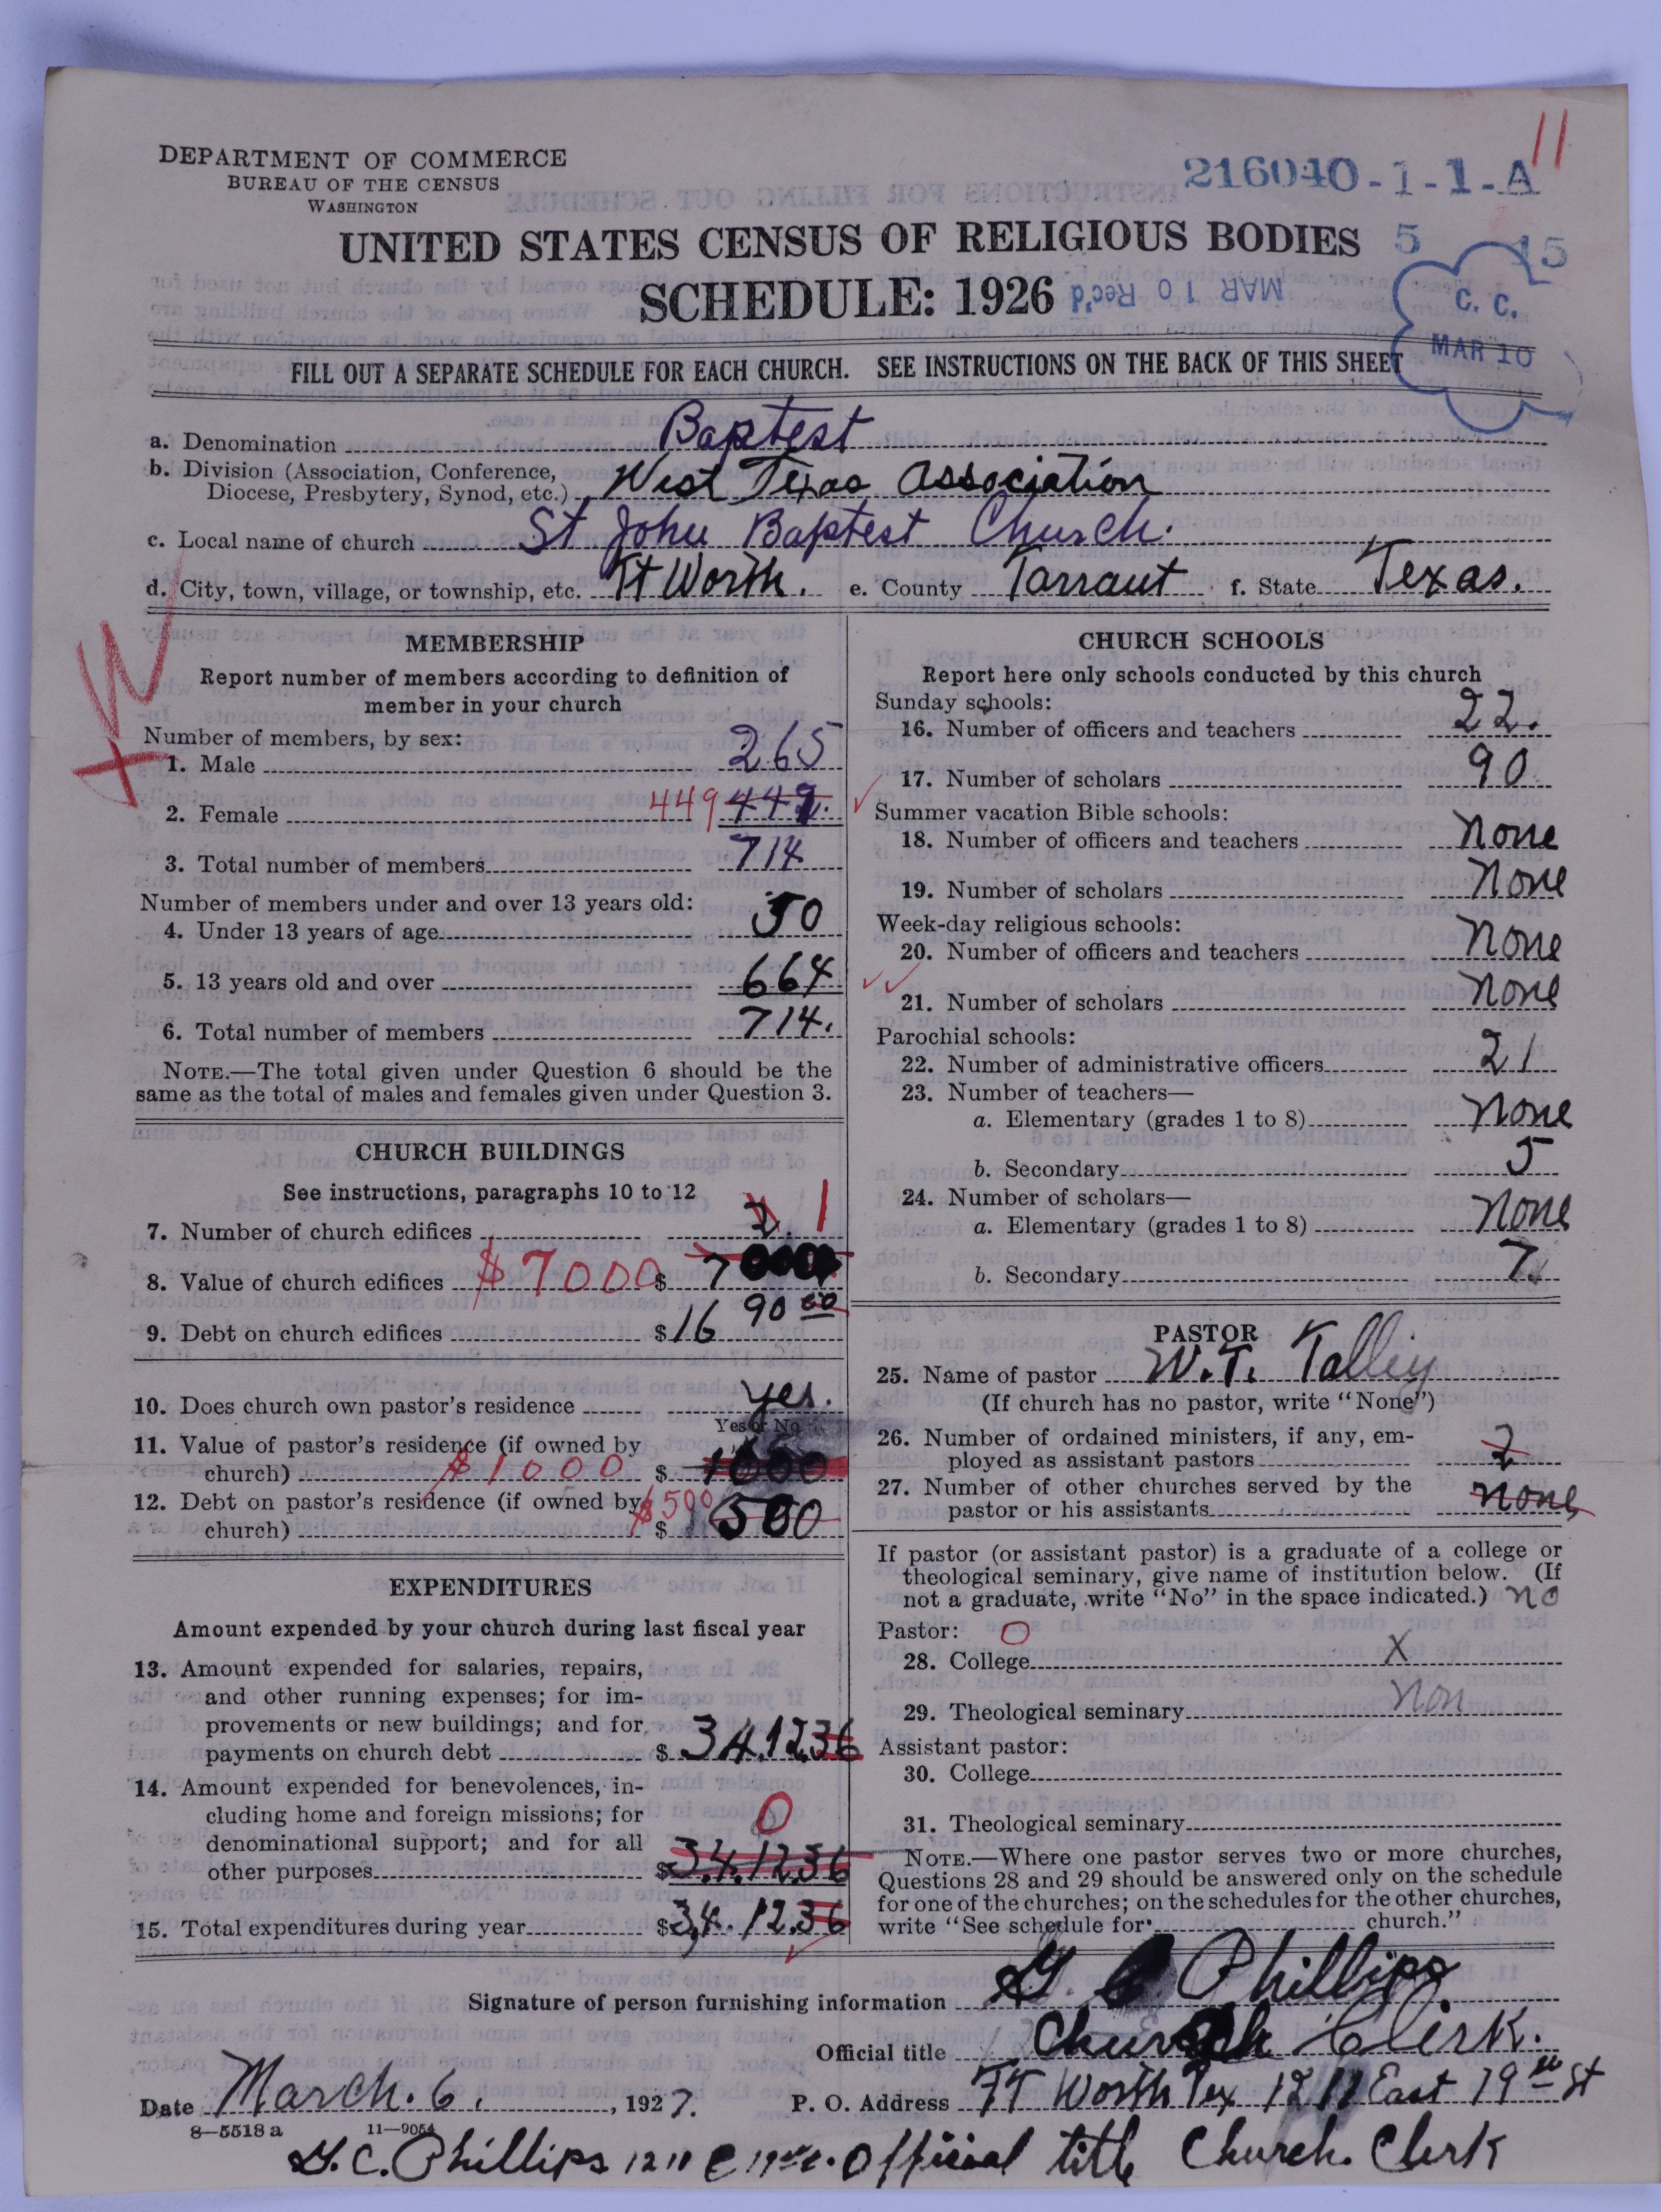 11
DEPARTMENT OF COMMERCE
BUREAU OF THE CENSUS
WASHINGTON
216040-1-1-A
UNITED STATES CENSUS OF RELIGIOUS BODIES
5 15
SCHEDULE: 1926
MAR 10 Rec'd
C. C.
MAR 10
FILL OUT A SEPARATE SCHEDULE FOR EACH CHURCH. SEE INSTRUCTIONS ON THE BACK OF THIS SHEET
a. Denomination Baptest
b. Division (Association, Conference,
Diocese, Presbytery, Synod, etc.) West Texas Association
c. Local name of church St John Baptest Church.
d. City, town, village, or township, etc. Ft Worth. e. County Tarraut f. State Texas.
MEMBERSHIP
Report number of members according to definition of
member in your church
Number of members, by sex:
1. Male 265
2. Female 449 449.
3. Total number of members 714
Number of members under and over 13 years old:
4. Under 13 years of age 50
5. 13 years old and over 664
6. Total number of members 714.
NOTE.—The total given under Question 6 should be the
same as the total of males and females given under Question 3.
CHURCH BUILDINGS
See instructions, paragraphs 10 to 12
7. Number of church edifices 2. 1
8. Value of church edifices $7000 $ 7000
9. Debt on church edifices $1690 00
10. Does church own pastor's residence yes.
Yes or No
11. Value of pastor's residence (if owned by
church) $1000 $ 1000
12. Debt on pastor's residence (if owned by
church) $500 $ 500
EXPENDITURES
Amount expended by your church during last fiscal year
13. Amount expended for salaries, repairs,
and other running expenses; for im-
provements or new buildings; and for
payments on church debt $ 3412.36
14. Amount expended for benevolences, in-
cluding home and foreign missions; for
denominational support; and for all
other purposes $3412.36 0
15. Total expenditures during year $3,412.36
CHURCH SCHOOLS
Report here only schools conducted by this church
Sunday schools:
16. Number of officers and teachers 22.
17. Number of scholars 90
Summer vacation Bible schools:
18. Number of officers and teachers none
19. Number of scholars none
Week-day religious schools:
20. Number of officers and teachers none
21. Number of scholars none
Parochial schools:
22. Number of administrative officers 21
23. Number of teachers—
a. Elementary (grades 1 to 8) none
b. Secondary 5
24. Number of scholars—
a. Elementary (grades 1 to 8) none
b. Secondary 7.
PASTOR
25. Name of pastor W. T. Talley
(If church has no pastor, write "None")
26. Number of ordained ministers, if any, em-
ployed as assistant pastors 2
27. Number of other churches served by the
pastor or his assistants none
If pastor (or assistant pastor) is a graduate of a college or
theological seminary, give name of institution below. (If
not a graduate, write "No" in the space indicated.) no
Pastor: O
28. College X
29. Theological seminary Non
Assistant pastor:
30. College
31. Theological seminary
NOTE.—Where one pastor serves two or more churches,
Questions 28 and 29 should be answered only on the schedule
for one of the churches; on the schedules for the other churches,
write "See schedule for church."
Signature of person furnishing information G. C. Phillips.
Official title Church Clerk.
Date March. 6, 1927. P. O. Address FT Worth Tex 1211 East 19th St
8—5518a 11—9054
G. C. Phillips 1211 E 19th. Official title Church. Clerk